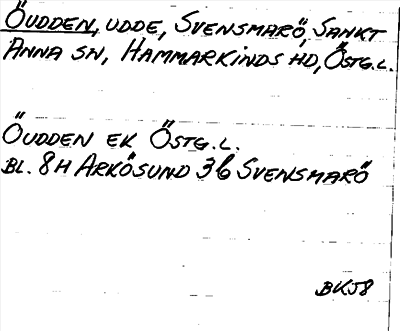 ÖUDDEN, UDDE, SVENSMARÖ, SANKT
ANNA SN, HAMMARKINDS HD, ÖSTG.L.
ÖUDDEN EK ÖSTG.L.
BL. 8H ARKÖSUND 3b SVENSMARÖ
BKJ8